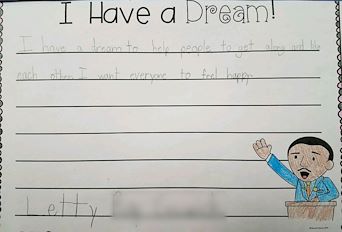 I Have a Dream!
I have a dream to help people to get along and like
each other. I want everyone to feel happy
Letty